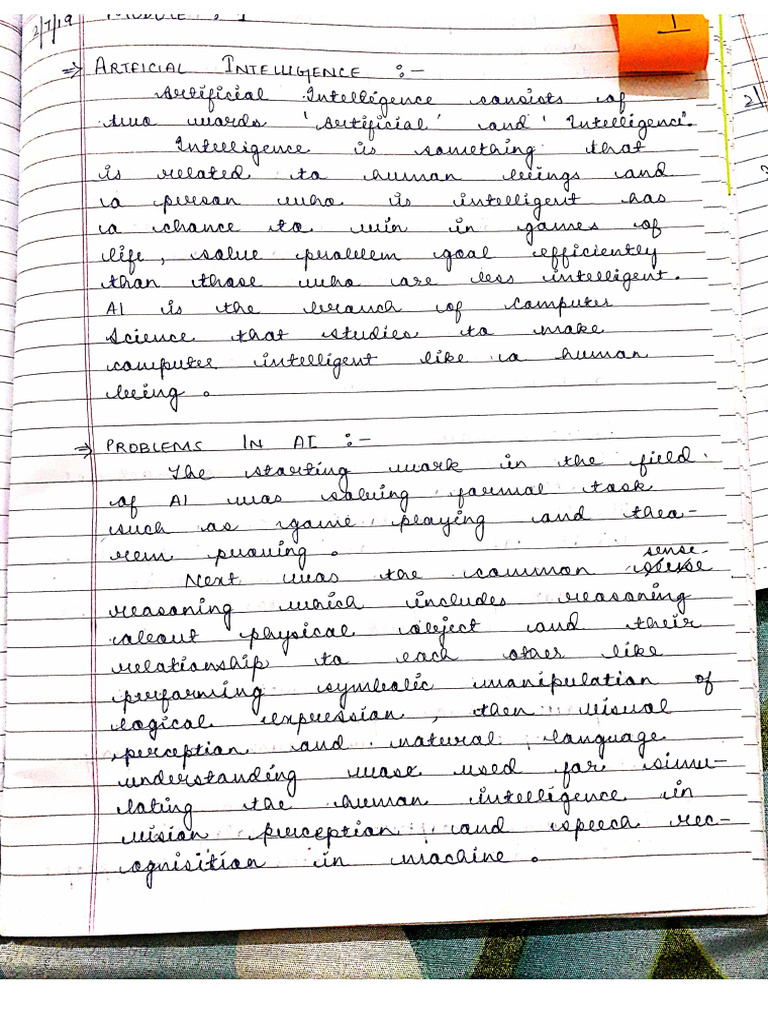 2/7/19
MODULE : 1
1
⇒ ARTFICIAL INTELLIGENCE :-
Artificial Intelligence consists of
two words 'Artificial' and 'Intelligence'.
Intelligence is something that
is related to human beings and
a person who is intelligent has
a chance to win in games of
life, solve problem goal efficiently
than those who are less intelligent.
AI is the branch of Computer
Science that studies to make
computer intelligent like a human
being.
⇒ PROBLEMS IN AI :-
The starting work in the field
of AI was solving formal task
such as game playing and theo-
rem proving.
Next was the common sense
reasoning which includes reasoning
about physical object and their
relationship to each other like
performing symbolic manipulation of
logical expression, then visual
perception and natural language
understanding was used for simu-
lating the human intelligence in
vision perception and speech rec-
ognisition in machine.